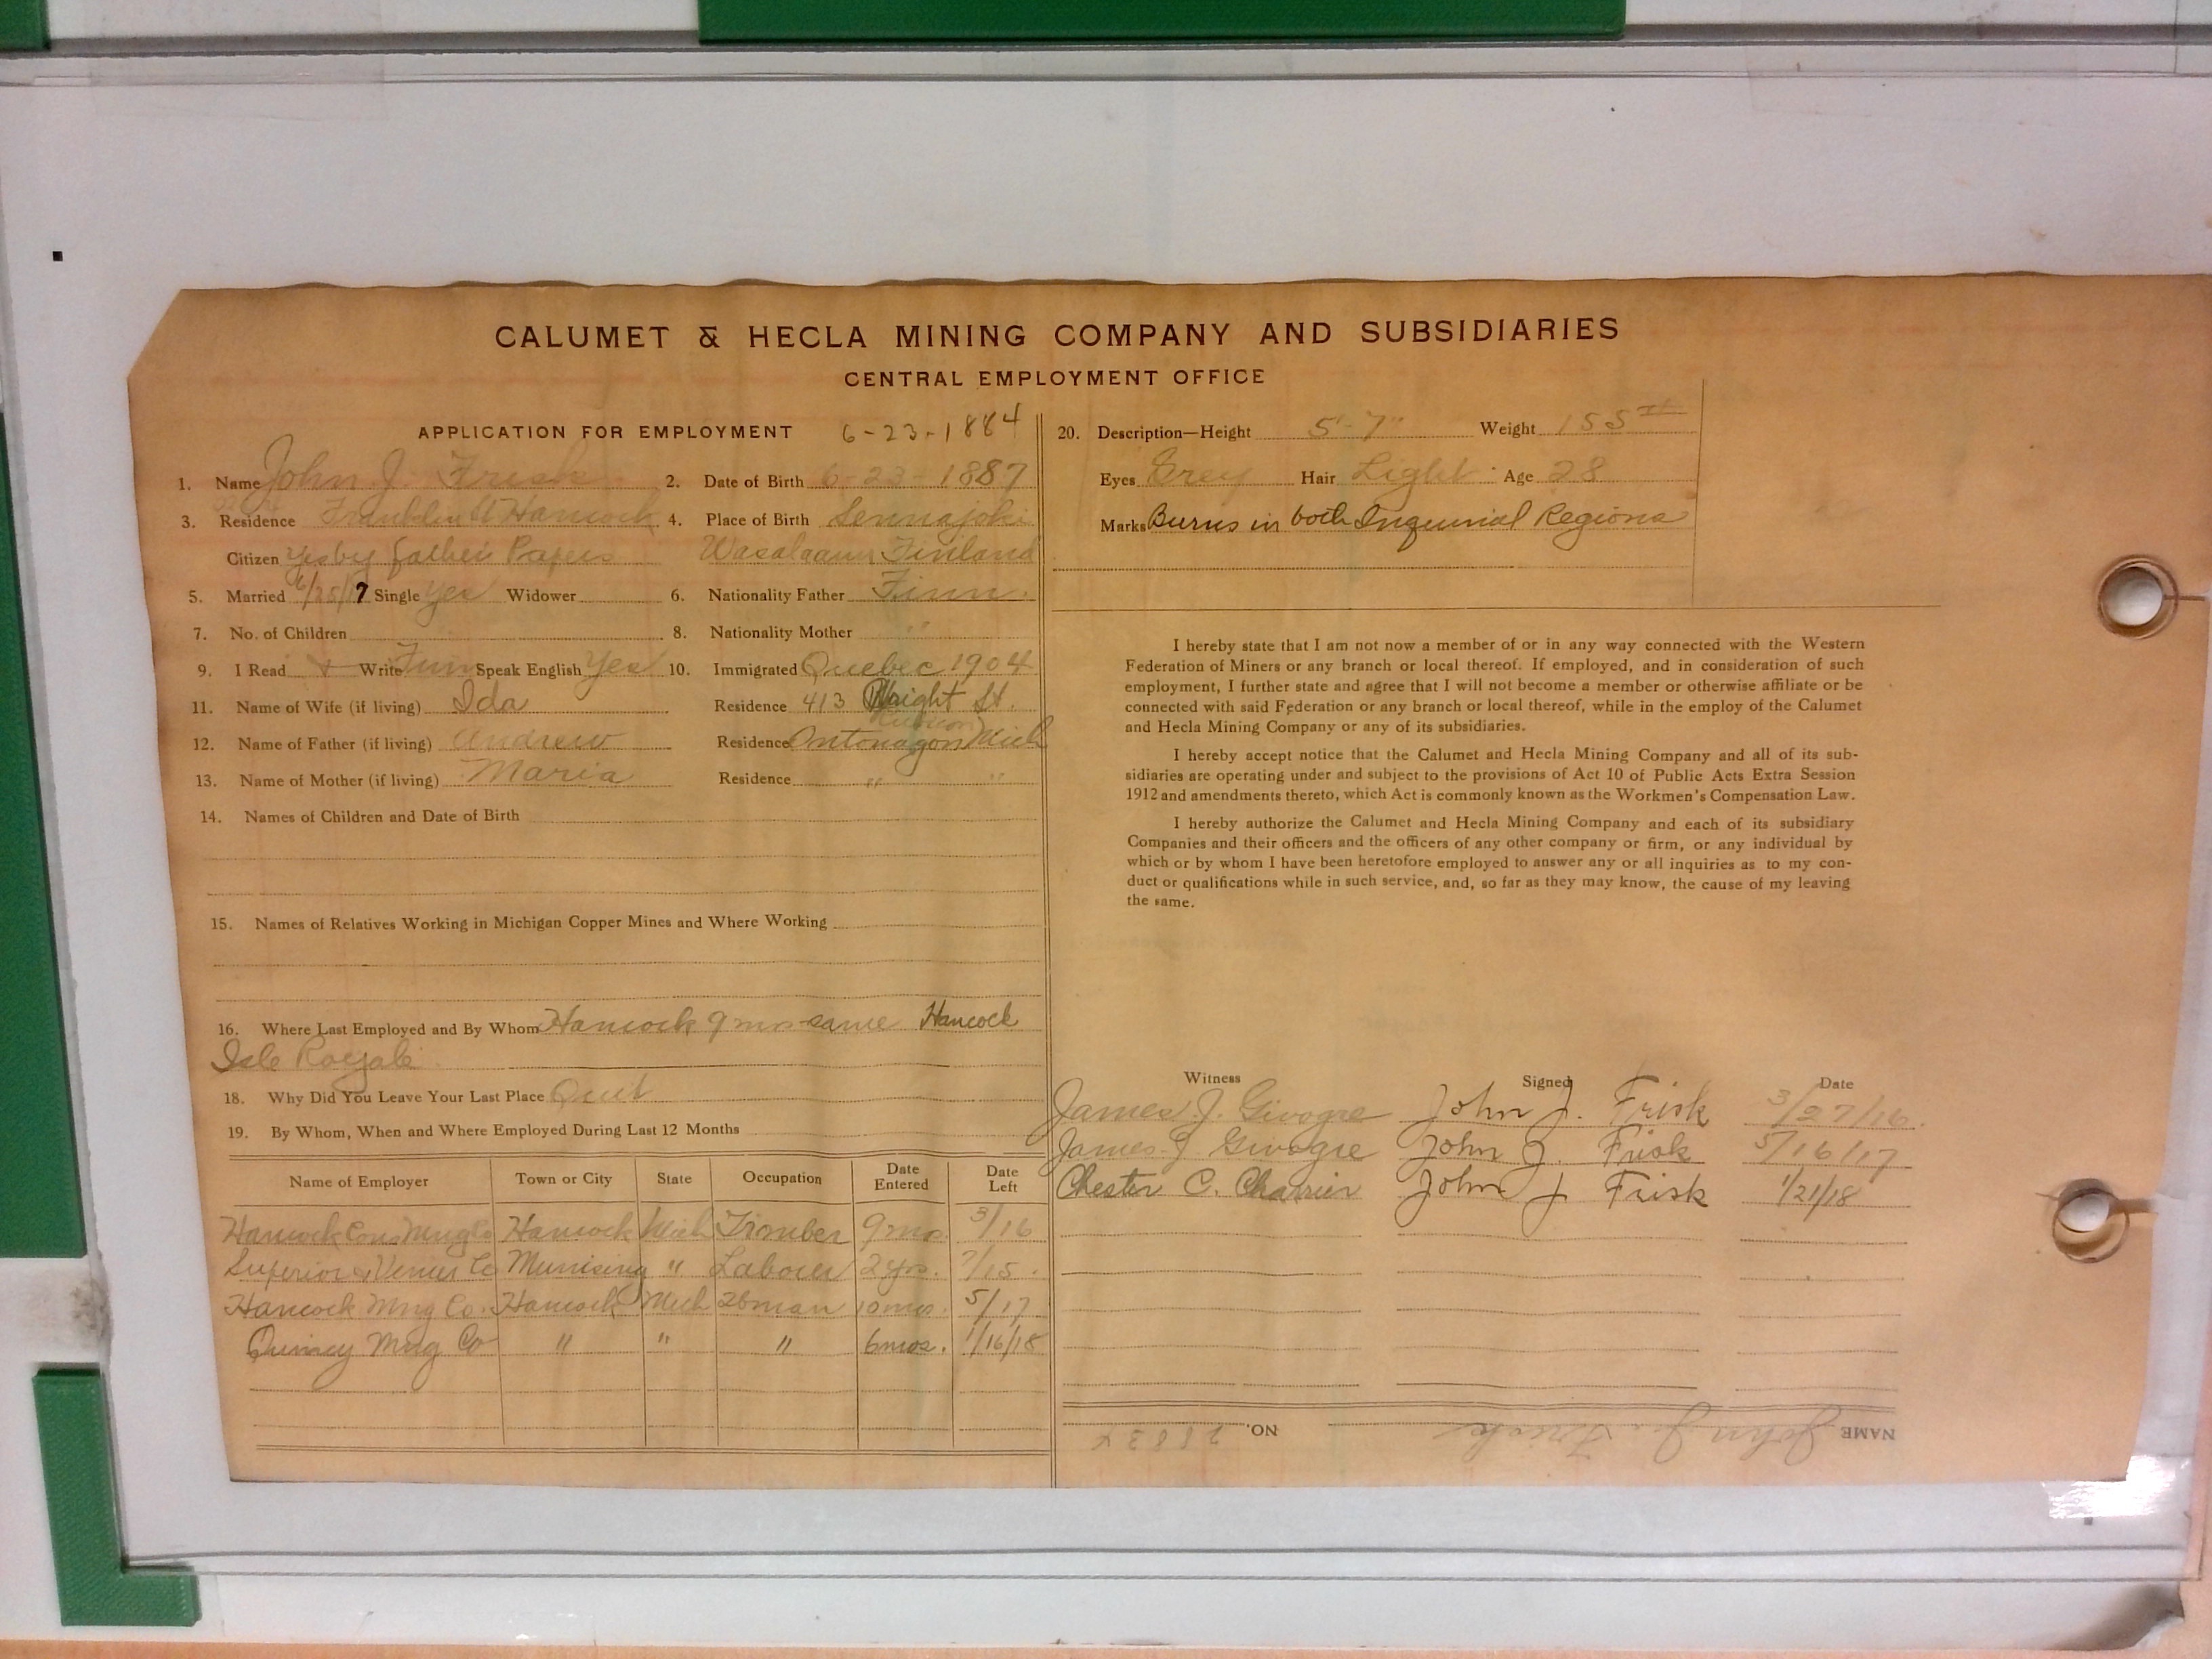 CALUMET & HECLA MINING COMPANY AND SUBSIDIARIES
CENTRAL EMPLOYMENT OFFICE
APPLICATION FOR EMPLOYMENT 6-23-1884
1. Name John J. Frisk 2. Date of Birth 6-23-1887
3. Residence Franklin St Hancock 4. Place of Birth
Citizen Yes by father's Papers Finland
5. Married 6/25/17 Single Yes Widower 6. Nationality Father Finn.
7. No. of Children 8. Nationality Mother "
9. I Read + Write Finn Speak English Yes 10. Immigrated Quebec 1904
11. Name of Wife (if living) Ida Residence 413 St.
12. Name of Father (if living) Andrew Residence Ontonagon Mich
13. Name of Mother (if living) Maria Residence " "
14. Names of Children and Date of Birth
15. Names of Relatives Working in Michigan Copper Mines and Where Working
16. Where Last Employed and By Whom Hancock 9 mos same Hancock
Isle Royale
18. Why Did You Leave Your Last Place Quit
19. By Whom, When and Where Employed During Last 12 Months
Name of Employer Town or City State Occupation Date Entered Date Left
Hancock Cons Mng Co Hancock Mich Timber 9 mos. 3/16
Superior Co Munising " Laborer 2 yrs. 7/15.
Hancock Mng Co. Hancock Mich 10 mos. 5/17
Quincy Mng Co " " " 6 mos. 1/16/18
20. Description—Height 5'-7" Weight 155#
Eyes Grey Hair Light Age 28
Marks Burns in both Inguinial Regions
I hereby state that I am not now a member of or in any way connected with the Western
Federation of Miners or any branch or local thereof. If employed, and in consideration of such
employment, I further state and agree that I will not become a member or otherwise affiliate or be
connected with said Federation or any branch or local thereof, while in the employ of the Calumet
and Hecla Mining Company or any of its subsidiaries.
I hereby accept notice that the Calumet and Hecla Mining Company and all of its sub-
sidiaries are operating under and subject to the provisions of Act 10 of Public Acts Extra Session
1912 and amendments thereto, which Act is commonly known as the Workmen's Compensation Law.
I hereby authorize the Calumet and Hecla Mining Company and each of its subsidiary
Companies and their officers and the officers of any other company or firm, or any individual by
which or by whom I have been heretofore employed to answer any or all inquiries as to my con-
duct or qualifications while in such service, and, so far as they may know, the cause of my leaving
the same.
Witness Signed Date
James J. Givogre John J. Frisk 3/27/16.
James J Givogre John J. Frisk 5/16/17
Chester C. Charrier John J Frisk 1/21/18
NAME John J. Frisk NO.